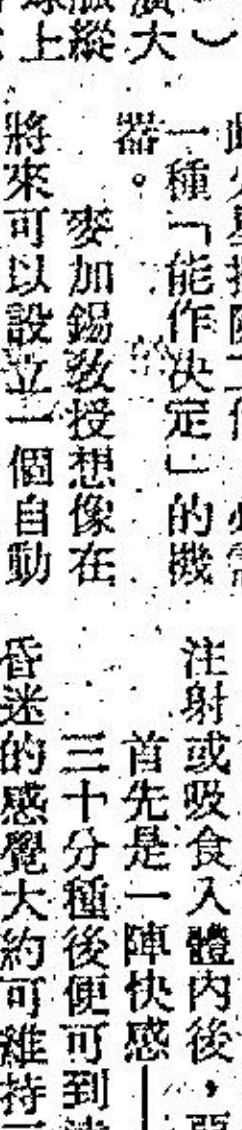 大︵
上縱
一種「能作決定」的機
器。
麥加錫敎授想像在
將來可以設立一個自動
注射或吸食入體內後，
首先是一陣快感—
三十分種後便可到
昏迷的感覺大約可維持